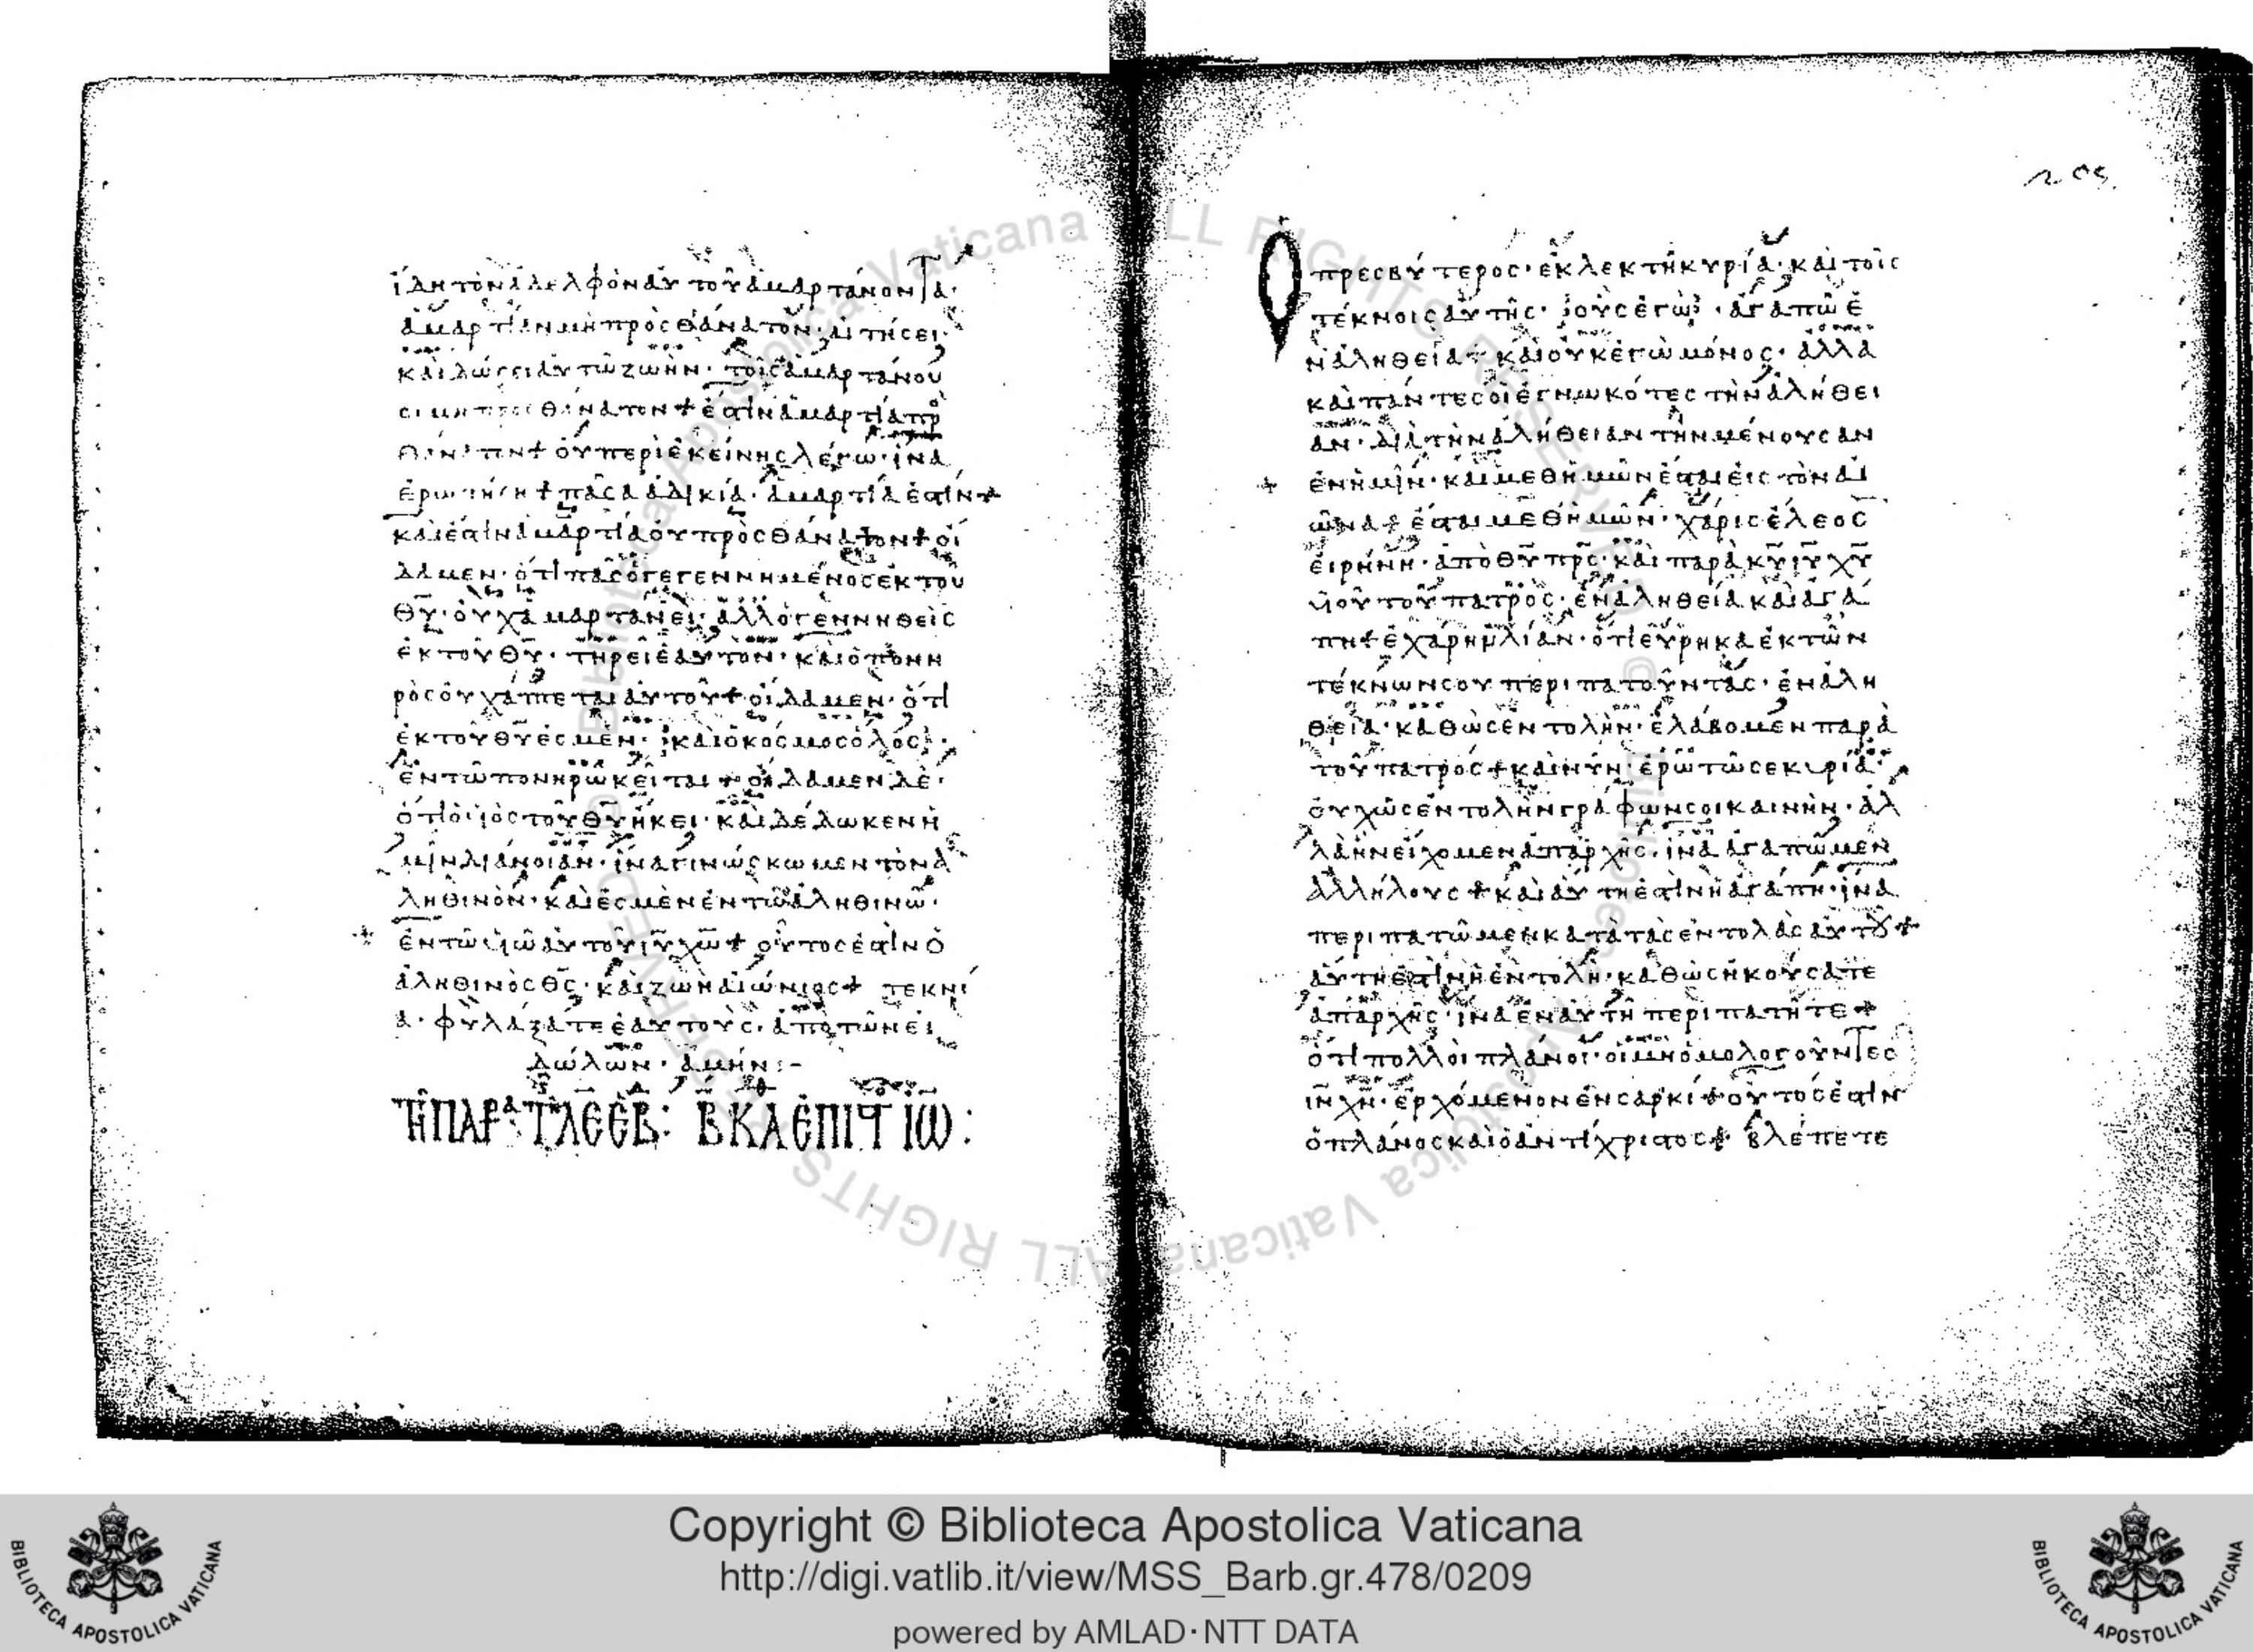 ἴδη τὸν ἀδελφὸν αὐτοῦ ἁμαρτάνοντα·
ἁμαρτίαν μὴ πρὸς θάνατον· αἰτήσει·
καὶ δώσει αὐτῶ ζωὴν· τοῖς ἁμαρτάνου
σι μὴ πρὸς θάνατον + ἐστὶν ἁμαρτία πρ
θάνατον + οὐ περὶ ἐκείνης λέγω· ἵνα
ἐρωτήση + πᾶσα ἀδικία· ἁμαρτία ἐστὶν +
καὶ ἐστὶν ἁμαρτία οὐ πρὸς θάνατον + οἴ
δαμεν· ὅτι πᾶς ὁ γεγεννημένος ἐκ τοῦ
θῦ· οὐχ ἁμαρτάνει· ἀλλ ὁ γεννηθεὶς
ἐκ τοῦ θῦ· τηρεῖ ἑαυτὸν· καὶ ὁ πονη
ρὸς οὐχ ἅπτεται αὐτοῦ + οἴδαμεν· ὅτι
ἐκ τοῦ θῦ ἐσμὲν· καὶ ὁ κόσμος ὅλος·
ἐν τῶ πονηρῶ κεῖται + οἴδαμεν δὲ·
ὅτι ὁ ϊὸς τοῦ θῦ ἥκει· καὶ δέδωκεν ἡ
μῖν διάνοιαν· ἵνα γινώσκωμεν τὸν ἀ
ληθινὸν· καὶ ἐσμὲν ἐν τῶ ἀληθινῶ·
+ ἐν τῶ ϋιῶ αὐτοῦ ιῦ χω + οὗτος ἐστὶν ὁ
ἀληθινὸς θς· καὶ ζωὴ αἰώνιος + τεκνί
α· φυλάξατε ἑαυτοὺς· ἀπὸ τῶν εἰ
δώλων· ἀμήν:-
Ο πρεσβύτερος· ἐκλεκτῆ κυρία· καὶ τοῖς
τέκνοις αὐτῆς· οὓς ἐγὼ· ἀγαπῶ ἐ
ν ἀληθεία + καὶ οὐκ ἐγὼ μόνος· ἀλλὰ
καὶ πάντες οἱ ἐγνωκότες τὴν ἀλήθει
αν· διὰ τὴν ἀλήθειαν τὴν μένουσαν
+ ἐν ἡμῖν· καὶ μεθ ἡμῶν ἔσται εἰς τὸν αἰ
ῶνα + ἔσται μεθ ἡμῶν· χάρις ἔλεος
εἰρήνη· ἀπὸ θῦ πρς· καὶ παρὰ κῦ ιῦ χῦ
ϋιοῦ τοῦ πατρὸς· ἐν ἀληθεία καὶ ἀγά
πη + ἐχάρην λίαν· ὅτι εὕρηκα ἐκ τῶν
τέκνων σου περιπατοῦντας· ἐν ἀλη
θεία· καθὼς ἐντολὴν· ἐλάβομεν παρὰ
τοῦ πατρός + καὶ νῦν ἐρωτῶ σε κυρία·
οὐχ ὡς ἐντολὴν γράφων σοι καινὴν· ἀλ
λὰ ἣν εἴχομεν ἀπαρχῆς· ἵνα ἀγαπῶμεν
ἀλλήλους + καὶ αὕτη ἐστὶν ἡ ἀγάπη· ἵνα
περιπατῶμεν κατὰ τὰς ἐντολὰς αὐτοῦ +
αὕτη ἐστὶν ἡ ἐντολὴ· καθὼς ἠκούσατε
ἀπαρχῆς· ἵνα ἐν αὐτῆ περιπατῆτε +
ὅτι πολλοὶ πλάνοι· οἱ μὴ ὁμολογοῦντες
ιν χν· ἐρχόμενον ἐν σαρκί + οὗτός ἐστιν
ὁ πλάνος καὶ ὁ ἀντίχριστος + βλέπετε
Copyright © Biblioteca Apostolica Vaticana
http://digi.vatlib.it/view/MSS_Barb.gr.478/0209
powered by AMLAD·NTT DATA
BIBLIOTECA APOSTOLICA VATICANA
BIBLIOTECA APOSTOLICA VATICANA